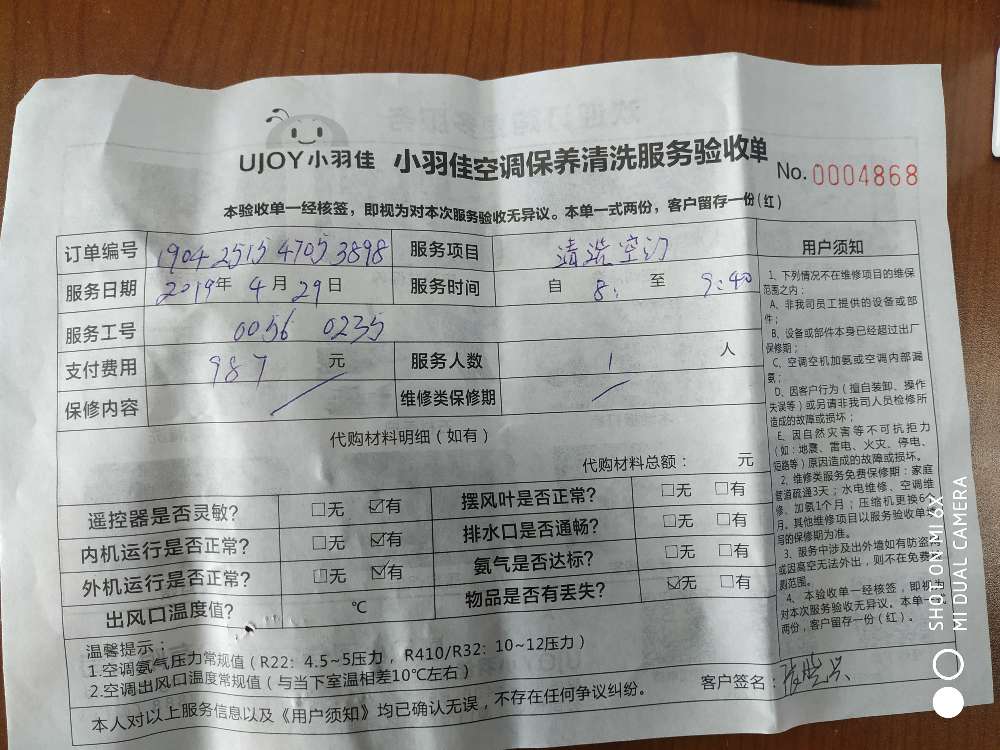 UJOY小羽佳 小羽佳空调保养清洗服务验收单
No.0004868
本验收单一经核签，即视为对本次服务验收无异议。本单一式两份，客户留存一份(红)
订单编号 1904 2515 4705 3898 服务项目 清洗空门
服务日期 2019年 4月 29日 服务时间 自 8: 至 9:40
服务工号 0056 0235
支付费用 987 元 服务人数 1 人
保修内容 维修类保修期
代购材料明细（如有）
代购材料总额： 元
遥控器是否灵敏? □无 ☑有 摆风叶是否正常? □无 □有
内机运行是否正常? □无 ☑有 排水口是否通畅? □无 □有
外机运行是否正常? □无 ☑有 氨气是否达标? □无 □有
出风口温度值? ℃ 物品是否有丢失? ☑无 □有
温馨提示：
1.空调氨气压力常规值（R22：4.5~5压力，R410/R32：10~12压力）
2.空调出风口温度常规值（与当下室温相差10℃左右）
客户签名：
本人对以上服务信息以及《用户须知》均已确认无误，不存在任何争议纠纷。
用户须知
1、下列情况不在维修项目的维保
范围之内：
A、非我司员工提供的设备或部
件；
B、设备或部件本身已经超过出厂
保修期；
C、空调空机加氨或空调内部漏
氨；
D、因客户行为（擅自装卸、操作
失误等）或另请非我司人员检修所
造成的故障或损坏；
E、因自然灾害等不可抗拒力
（如：地震、雷电、火灾、停电、
短路等）原因造成的故障或损坏。
2、维修类服务免费保修期：家庭
管道疏通3天；水电维修、空调维
修、加氨1个月；压缩机更换6个
月。其他维修项目以服务验收单填
写的保修期为准。
3、服务中涉及出外墙如有防盗
或因高空无法外出，则不在免费
测范围。
4、本验收单一经核签，即视为
对本次服务验收无异议。本单一
两份，客户留存一份（红）。
SHOT ON MI 6X
MI DUAL CAMERA